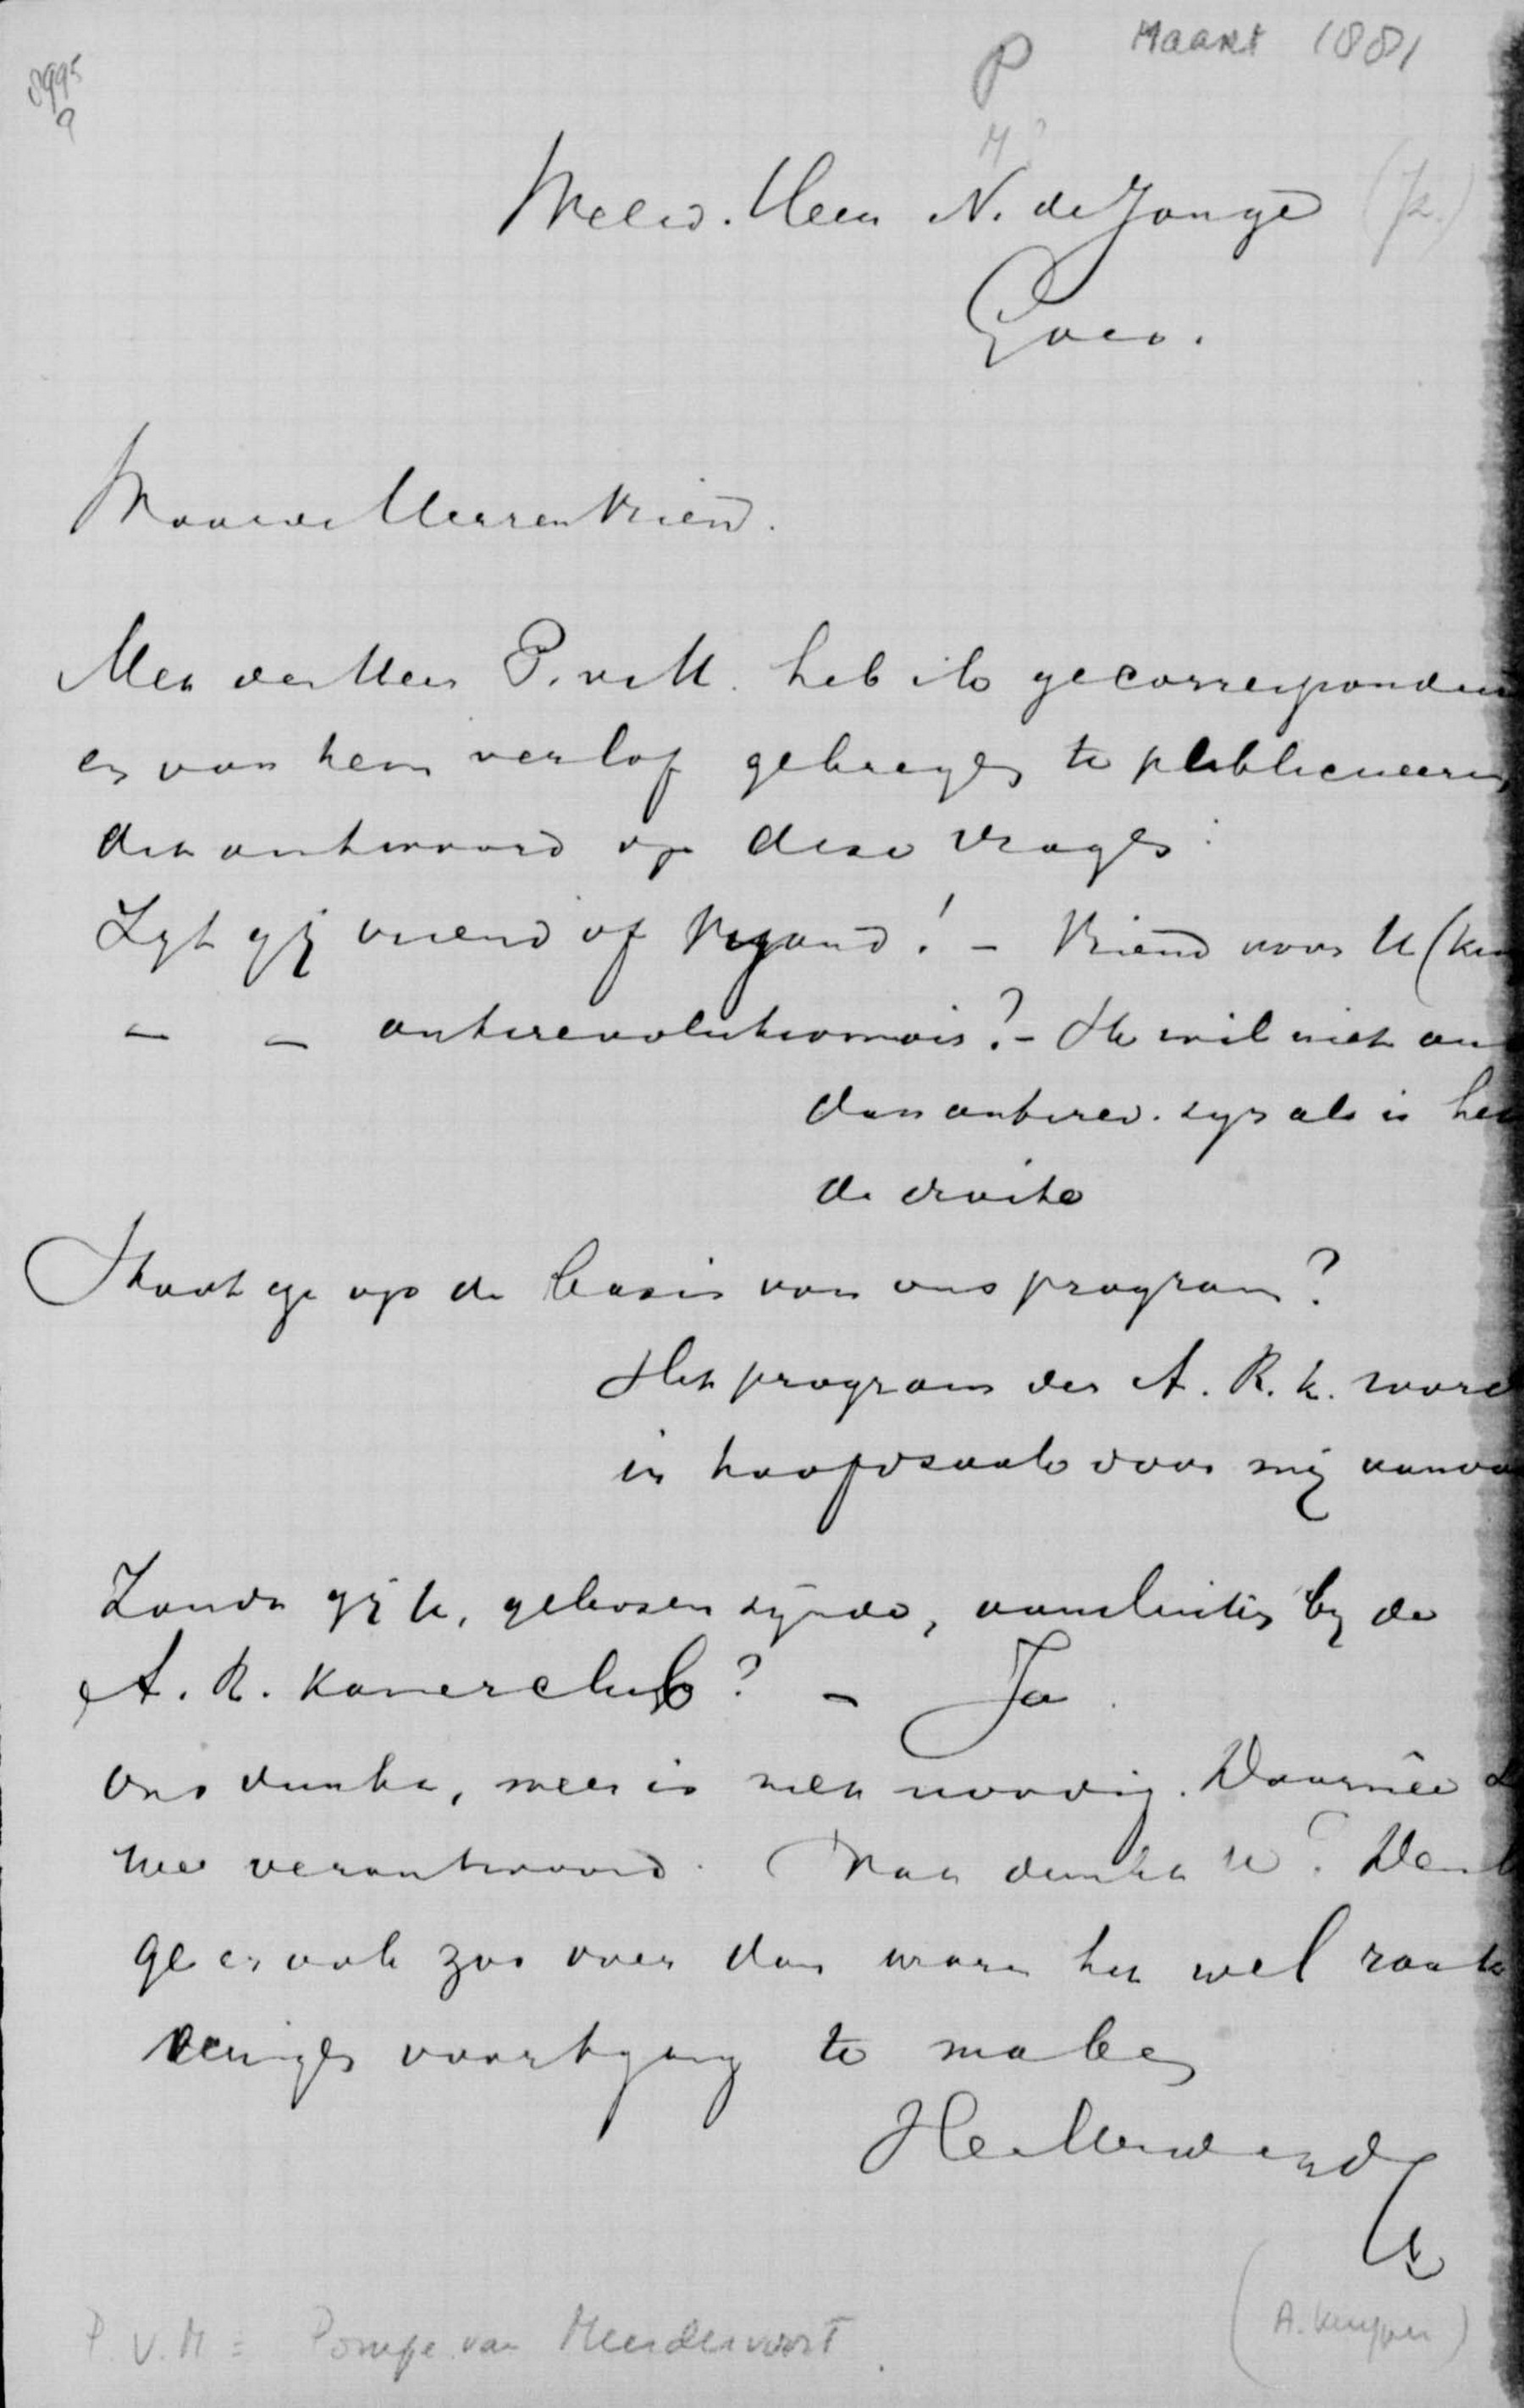 8995
9
P Maart 1881
M?
WelEd. Heer N. de Jonge (Jz.)
Goes.
Waarde Heer en Vriend.
Met den Heer P. v. M. heb ik gecorrespondeer
en van hem verlof gekregen te publiceeren
dit antwoord op deze vragen:
Zyt gij vriend of vyand! – Vriend voor U (
– – antirevolutionair? – Ik wil niet an
dan antirev. zyn als is het
de droite
Staat ge op de basis van ons program?
Het program der A. R. k. word
in hoofdzaak door mij aanva
Zoudt gij U, gekozen zijnde, aansluiten by de
A. R. Kamerclub? – Ja.
Ons dunkt, meer is niet noodig. Daarmêe
we verantwoord. Wat dunkt U? Denk
ge er ook zoo over dan ware het wel zaak
eenigen voortgang te maken
Heilbiddend
K
(A. Kuyper)
P. v. M = Pompe van Meerdervoort.